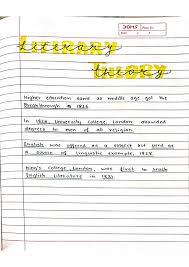 Literary
theory
Higher education same as middle age got the
Breakthrough in 1826.
In 1826 University College, London awarded
degrees to men of all religion.
English was offered as a subject but used as
a source of linguistic example, 1828.
King's College, London, was first to teach
English Literature in 1831.